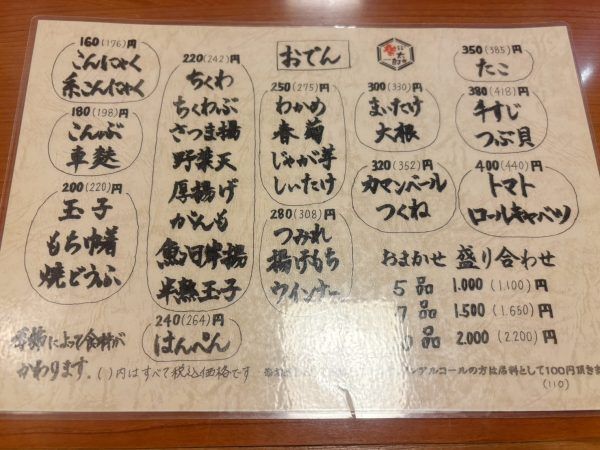 おでん
160(176)円
こんにゃく
糸こんにゃく
180(198)円
こんぶ
車麩
200(220)円
玉子
もち巾着
焼どうふ
220(242)円
ちくわ
ちくわぶ
さつま揚
野菜天
厚揚げ
がんも
魚河岸揚
半熟玉子
240(264)円
はんぺん
250(275)円
わかめ
春菊
じゃが芋
しいたけ
280(308)円
つみれ
揚げもち
ウインナー
300(330)円
まいたけ
大根
320(352)円
カマンベール
つくね
350(385)円
たこ
380(418)円
牛すじ
つぶ貝
400(440)円
トマト
ロールキャベツ
おまかせ 盛り合わせ
5品 1.000(1.100)円
7品 1.500(1.650)円
品 2.000(2.200)円
季節によって食材が
かわります.
( )内はすべて税込価格です
ノンアルコールの方は居料として100円頂き
(110)